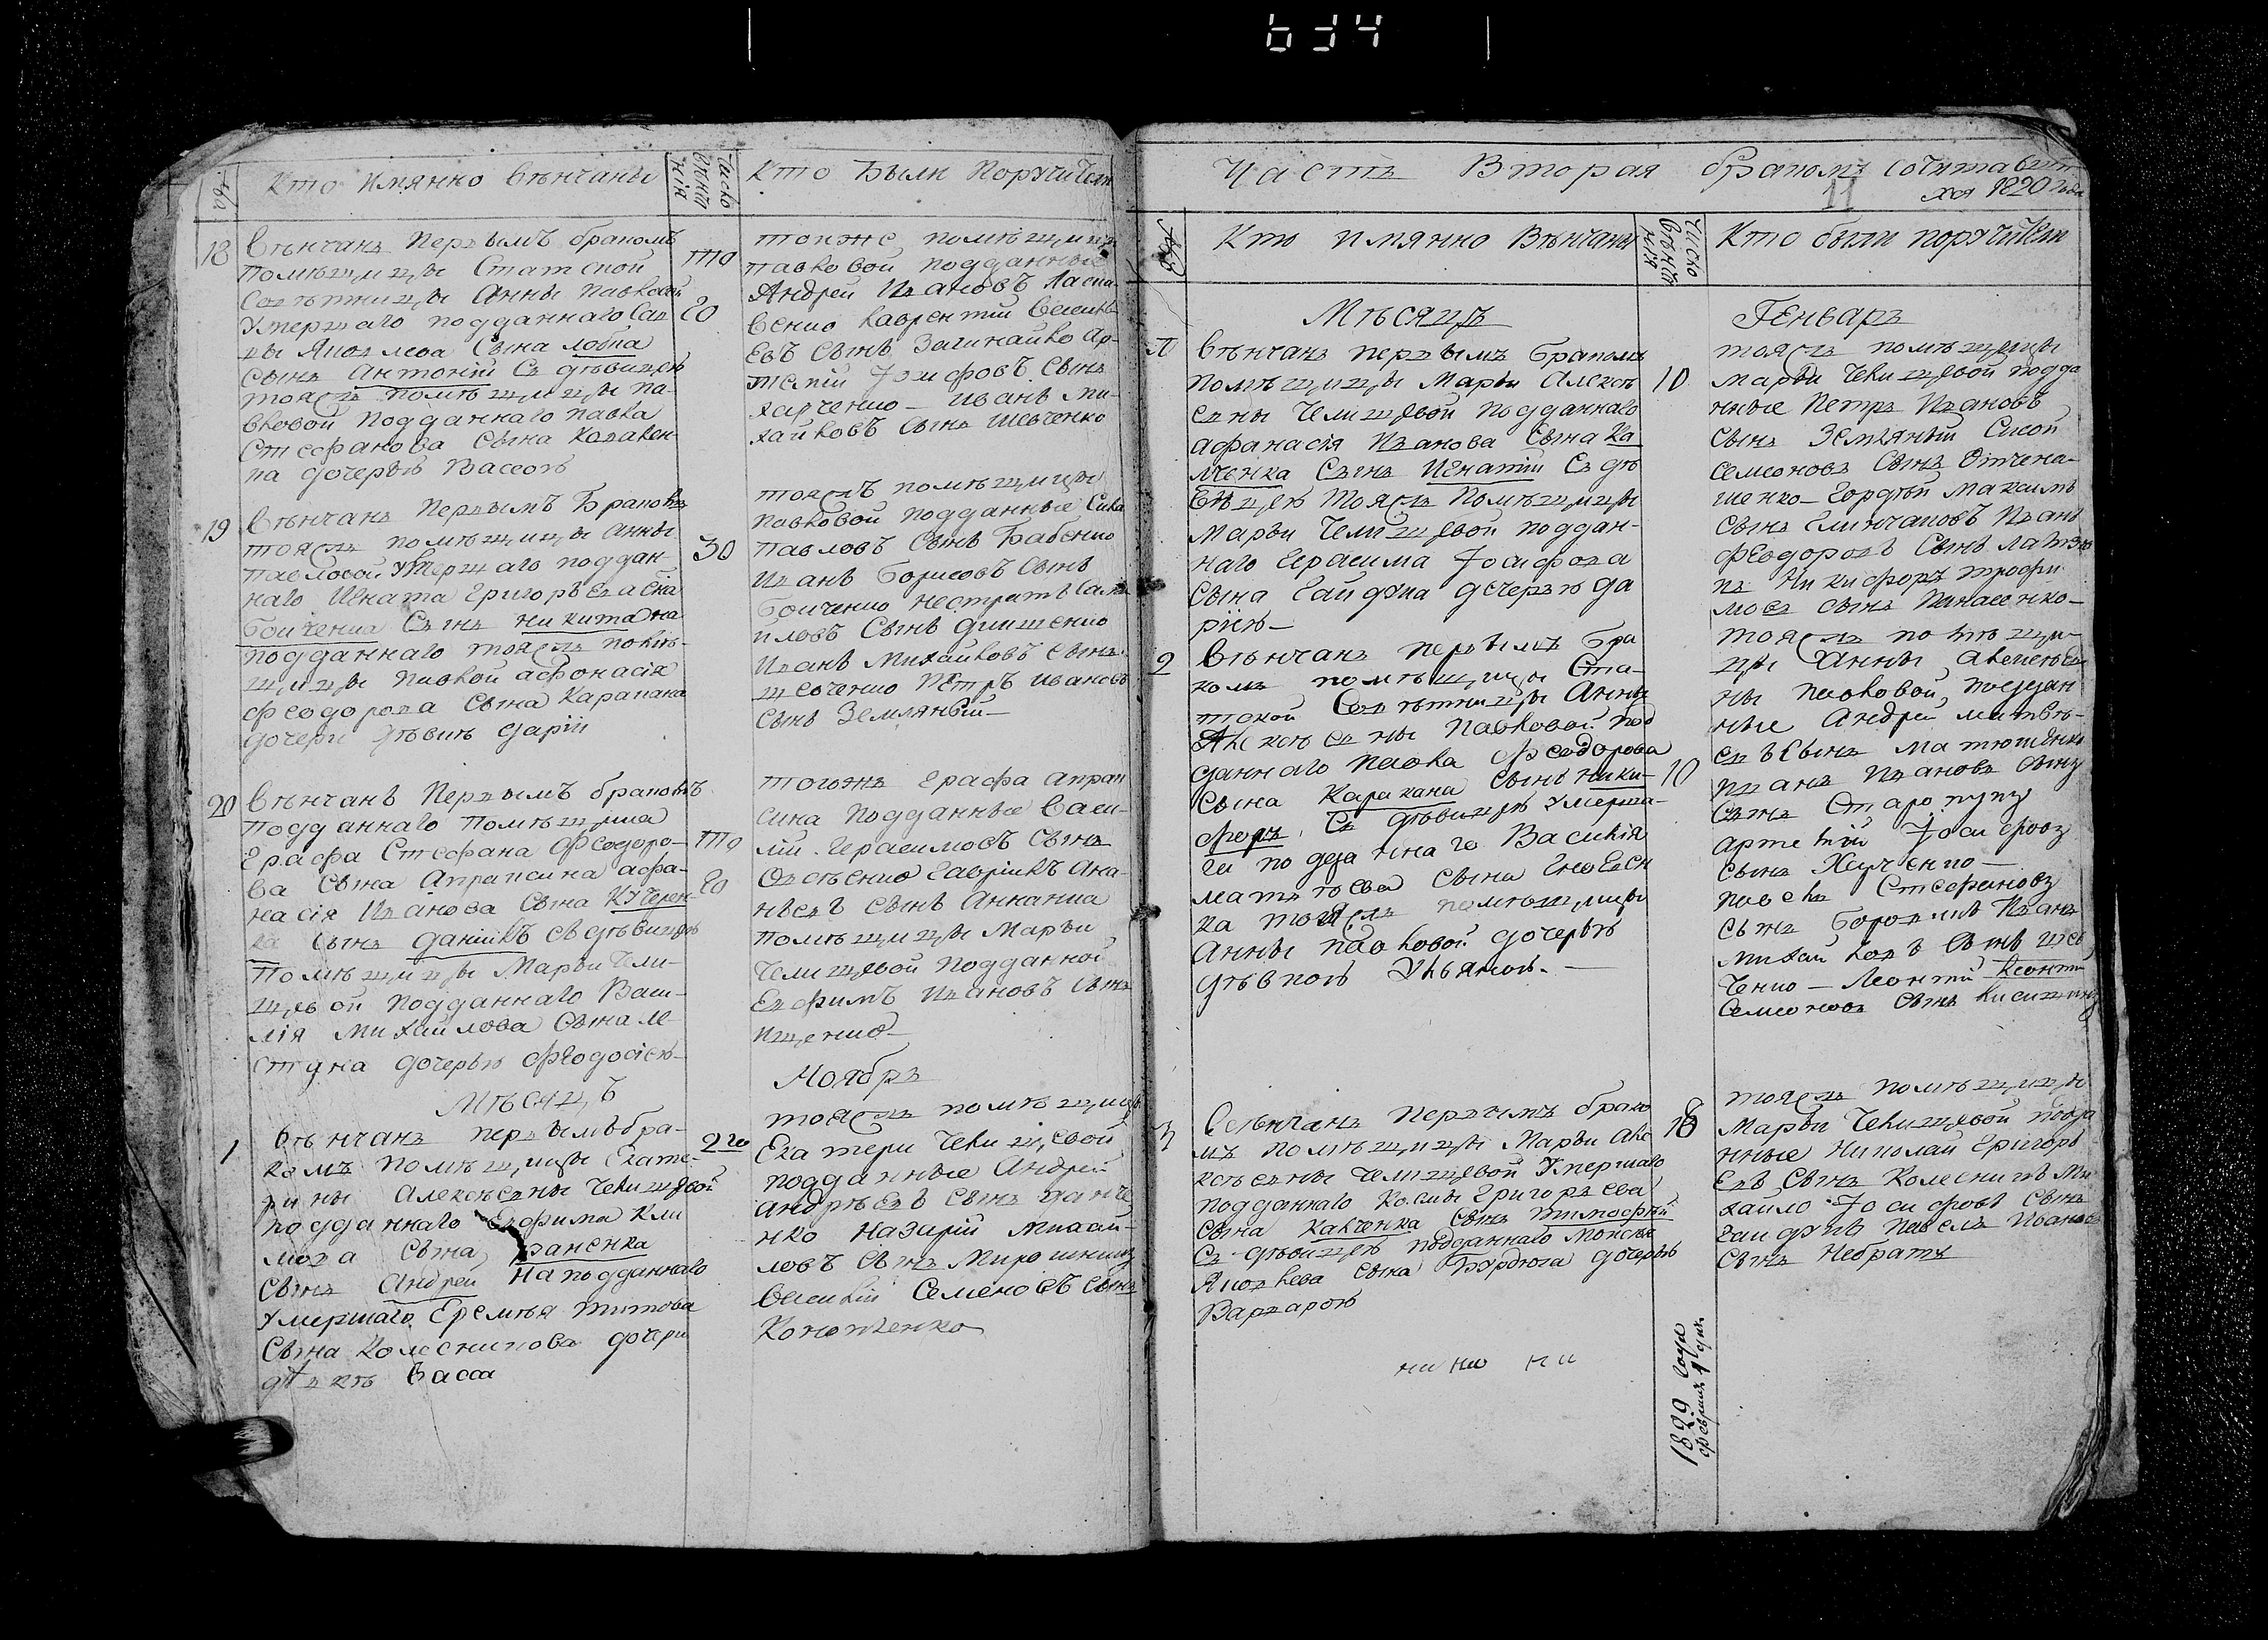 634
№
Кто Имянно Вѣнчаны
Число Вѣнчанія
Кто Были Поручители
18
Вѣнчанъ Первымъ бракомъ
помѣщицы Статской
Совѣтницы Анны Павловой
Умершаго подданнаго Сав
вы Яковлева Сына
Сынъ Антоній Съ дѣвицею
тояжъ помѣщицы Па-
вловой Подданнаго Павла
Стефанова Сына
на дочерью Вассою
то
20
тояже помѣщицы
Павловой подданные
Андрей Ивановъ
венко Лаврентій
евъ Сынъ Загинайко Ар-
темій Іосифовъ Сынъ
Харченко – Иванъ Ми-
хайловъ Сынъ Шевченко
19
Вѣнчанъ Первымъ Бракомъ
тояжъ помѣщицы Анны
Павловой Умершаго поддан-
наго Игната Григорьева Сна
Бойченка Сынъ Никита на
подданнаго тояжъ помѣ-
щицы Павловой Афонасія
Феодорова Сына Карапана
дочери дѣвитъ Даріи
30
тояжъ помѣщицы
Павловой подданные Сила
Павловъ Сынъ Бабенко
Иванъ Борисовъ Сынъ
Бойченко Нестратъ
иловъ Сынъ
Иванъ Михайловъ Сынъ
Шевченко Петръ Ивановъ
Сынъ Земляный –
20
Вѣнчанъ Первымъ бракомъ
Подданнаго помѣщика
Графа Стефана Феодоро-
ва Сына Апраксина Афа-
насія Иванова Сына Кучерен-
ка Сынъ Даніилъ Съ дѣвицею
Помѣщицы Марьи Чели-
щевой подданнаго Васи-
лія Михайлова Сына
дочерью Феодосіею –
то
20
тогожъ Графа Апрак
сина Подданные Васи-
лій Герасимовъ Сынъ
Овсѣенко Гавріилъ Ана-
ньевъ Сынъ
помѣщицы Марьи
Челищевой подданной
Евфимъ Ивановъ Сынъ
Ищенко –
Мѣсяцъ
Ноябрь
1
Вѣнчанъ первымъ бра-
комъ помѣщицы Екате-
рины Алексѣевны Челищевой
подданнаго Евфима Кли
мова Сына
Сынъ Андрей На подданнаго
Умершаго Еремѣя Титова
Сына Колесникова дочери
дѣвкѣ Васса
2го
тояжъ помѣщицы
Екатери Челищевой
подданные Андрей
Андрѣевъ Сынъ
нко Назарій Михай-
ловъ Сынъ Мирошникъ
Василій Семеновъ Сынъ
Часть Вторая бракомъ сочитавши
хся 1820 Года
11
№
Кто имянно Вѣнчаны
Число Вѣнчанія
Кто были поручители
Мѣсяцъ
Генварь
Вѣнчанъ первымъ бракомъ
помѣщицы Марьи Алексѣ
евны Челищевой подданнаго
Афанасія Иванова Сына Ка
лченка Сынъ Игнатій Съ дѣ
вицею тояжъ Помѣщицы
Марьи Челищевой поддан-
наго Герасима Іосифова
Сына Гайдука дочерью Да
ріею –
10
тояжъ помѣщицы
Марьи Челищевой подда
нные Петръ Ивановъ
Сынъ Земляный Сисой
Семеновъ Сынъ Отчена-
шенко – Гордѣй Максимъ
Сынъ Иванъ
Феодоровъ Сынъ
Никифоръ Трофи
мовъ сынъ Панасенко –
2
Вѣнчанъ первымъ бра
комъ помѣщицы Ста-
тской Совѣтницы Анны
Алексѣевны Павловой под
даннаго Павла Феодорова
Сына Карапана Сынъ Ники-
форъ Съ дѣвицею умерша-
го подданнаго Василія
Матвѣева Сына
ка тояжъ помѣщицы
Анны Павловой дочерью
дѣвкою Ульяною. –
10
тояжъ помѣщи-
цы Анны Алексѣев
ны Павловой поддан
ные Андрей Матвѣ-
евъ Сынъ Матюшенко
Иванъ Ивановъ Сынъ
Сынъ
Артемій Іосифовъ
сынъ Харченко –
Павелъ Стефановъ
Сынъ Иванъ
Михайловъ Сынъ Шев
ченко – Леонтій
Семеновъ Сынъ
3
Вѣнчанъ Первымъ брако
мъ помѣщицы Марьи Але
ксѣевны Челищевой Умершаго
подданнаго Космы Григорьева
Сына Калченка Сынъ Тимофей
Съ дѣвицею подданнаго Мойсея
Яковлева Сына Бурдюга дочерью
Варварою
18
тояжъ помѣщицы
Марьи Челищевой подда
нные Николай Григорь
евъ Сынъ Колесникъ Ми
хайло Іосифовъ Сынъ
Гайдукъ Павелъ Ивановъ
Сынъ Небратъ
1829 года
февраля 1 дня.